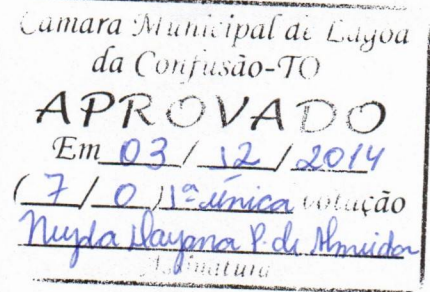 Câmara Municipal de Lagoa
da Confusão-TO
APROVADO
Em 03 / 12 / 2014
( 7 / 0 ) 1ª única votação
Dayana P. de Almeida
Assinatura